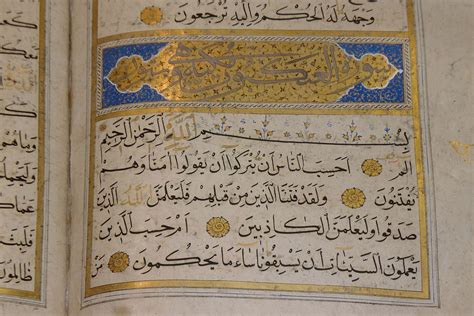 وجهه له الحكم واليه ترجعون
العنكبوت
بسم الله الرحمن الرحيم
الم احسب الناس ان يتركوا ان يقولوا امنا وهم
لا يفتنون ولقد فتنا الذين من قبلهم فليعلمن الله الذين
صدقوا وليعلمن الكاذبين ام حسب الذين
يعملون السيئات ان يسبقونا ساء ما يحكمون من
ظالمون